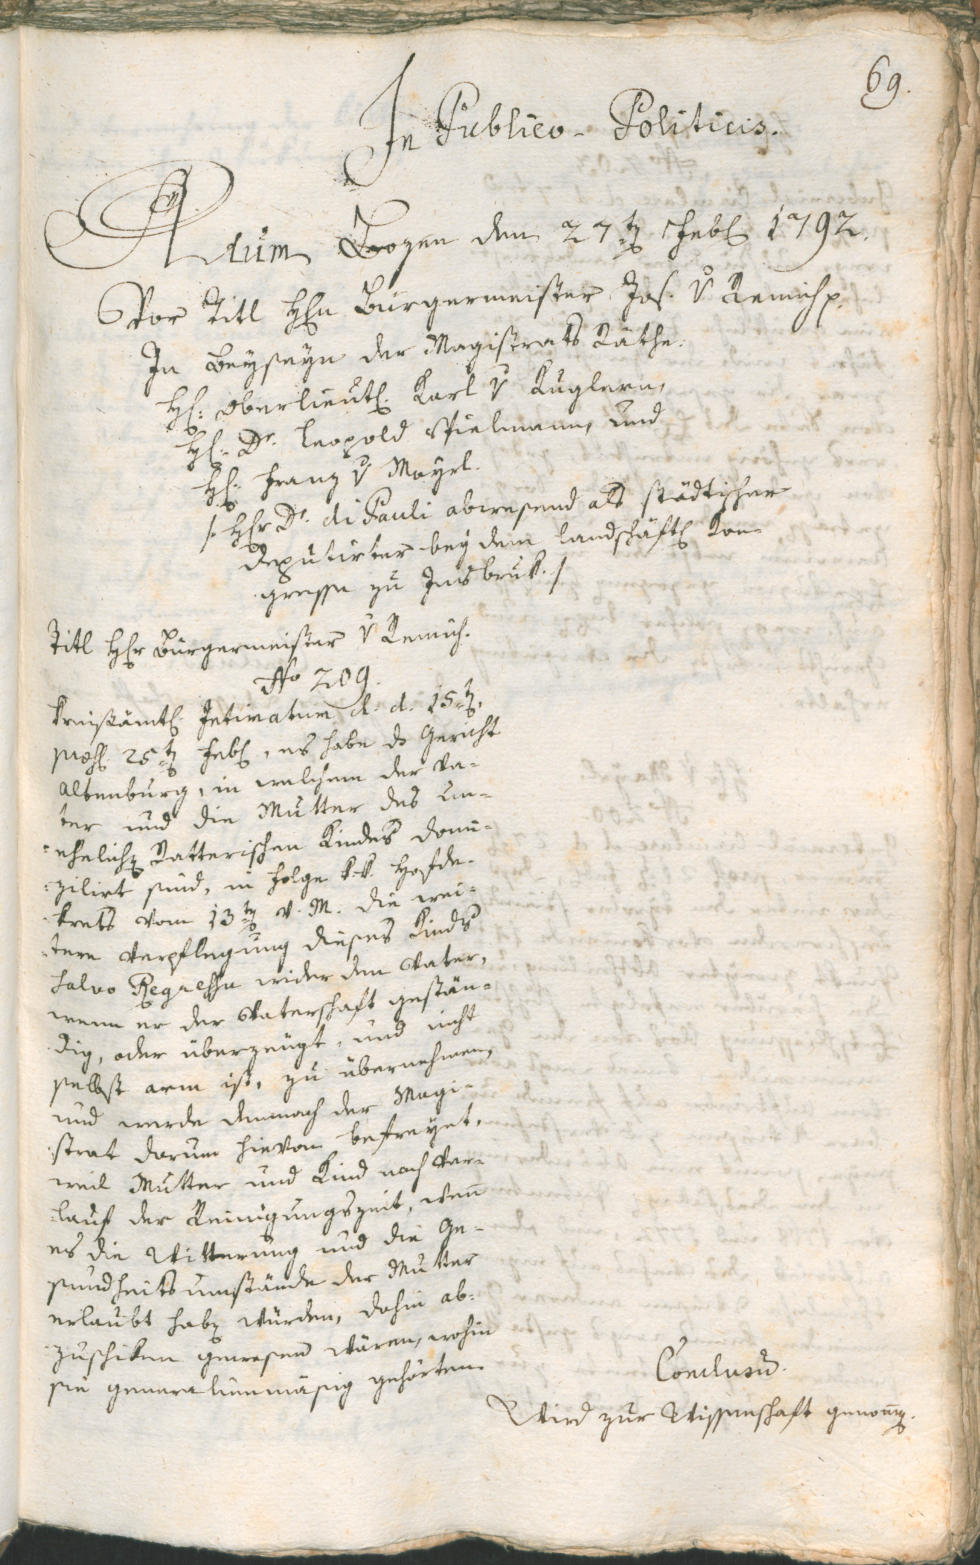 69.
In Publico-Politicis.
Actum Bozen den 27ten Febr 1792.
Vor Titl Hℓn Bürgermeister Jos. v Remich p.
In Beÿseÿn der Magistrats Räthe.
Hℓ: Oberlieutℓ. Karl v Kuglern,
Hℓ: Dr. Leopold Spielmann, und
Hℓ: Franz v Maÿrl.
/: Hℓr Dr. di Pauli abwesend als städtischer
Deputirter beÿ dem landschäftℓ Kon-
gresse zu Insbruk. /
Titl Hℓr Bürgermeister v Remich.
No 209.
Kreisämtℓ. Intimatum d. d. 15ten,
præsℓ 25ten Febℓ, es habe ds Gericht
Altenburg, in welchem der Va-
ter und die Mutter des un-
ehelichen Ratterischen Kindes domi-
zilirt sind, in Folge k.k. Hofde-
krets vom 13ten v. M. die wei-
tere Verpflegung dieses Kinds
salvo Regressu wider den Vater,
wenn er der Vaterschaft gestän-
dig, oder überzeugt, und nicht
selbst arm ist, zu übernehmen,
und werde demnach der Magi-
strat darum hievon befreÿet,
weil Mutter und Kind nach Ver-
lauf der Reinigungszeit, wen̄
es die Witterung und die Ge-
sundheitsumstände der Mutter
erlaubt haben würden, dahin ab-
zuschiken gewesen wären, wohin
sie generalienmäsig gehörten.
Conclusū.
Wird zur Wissenschaft genom̄en.